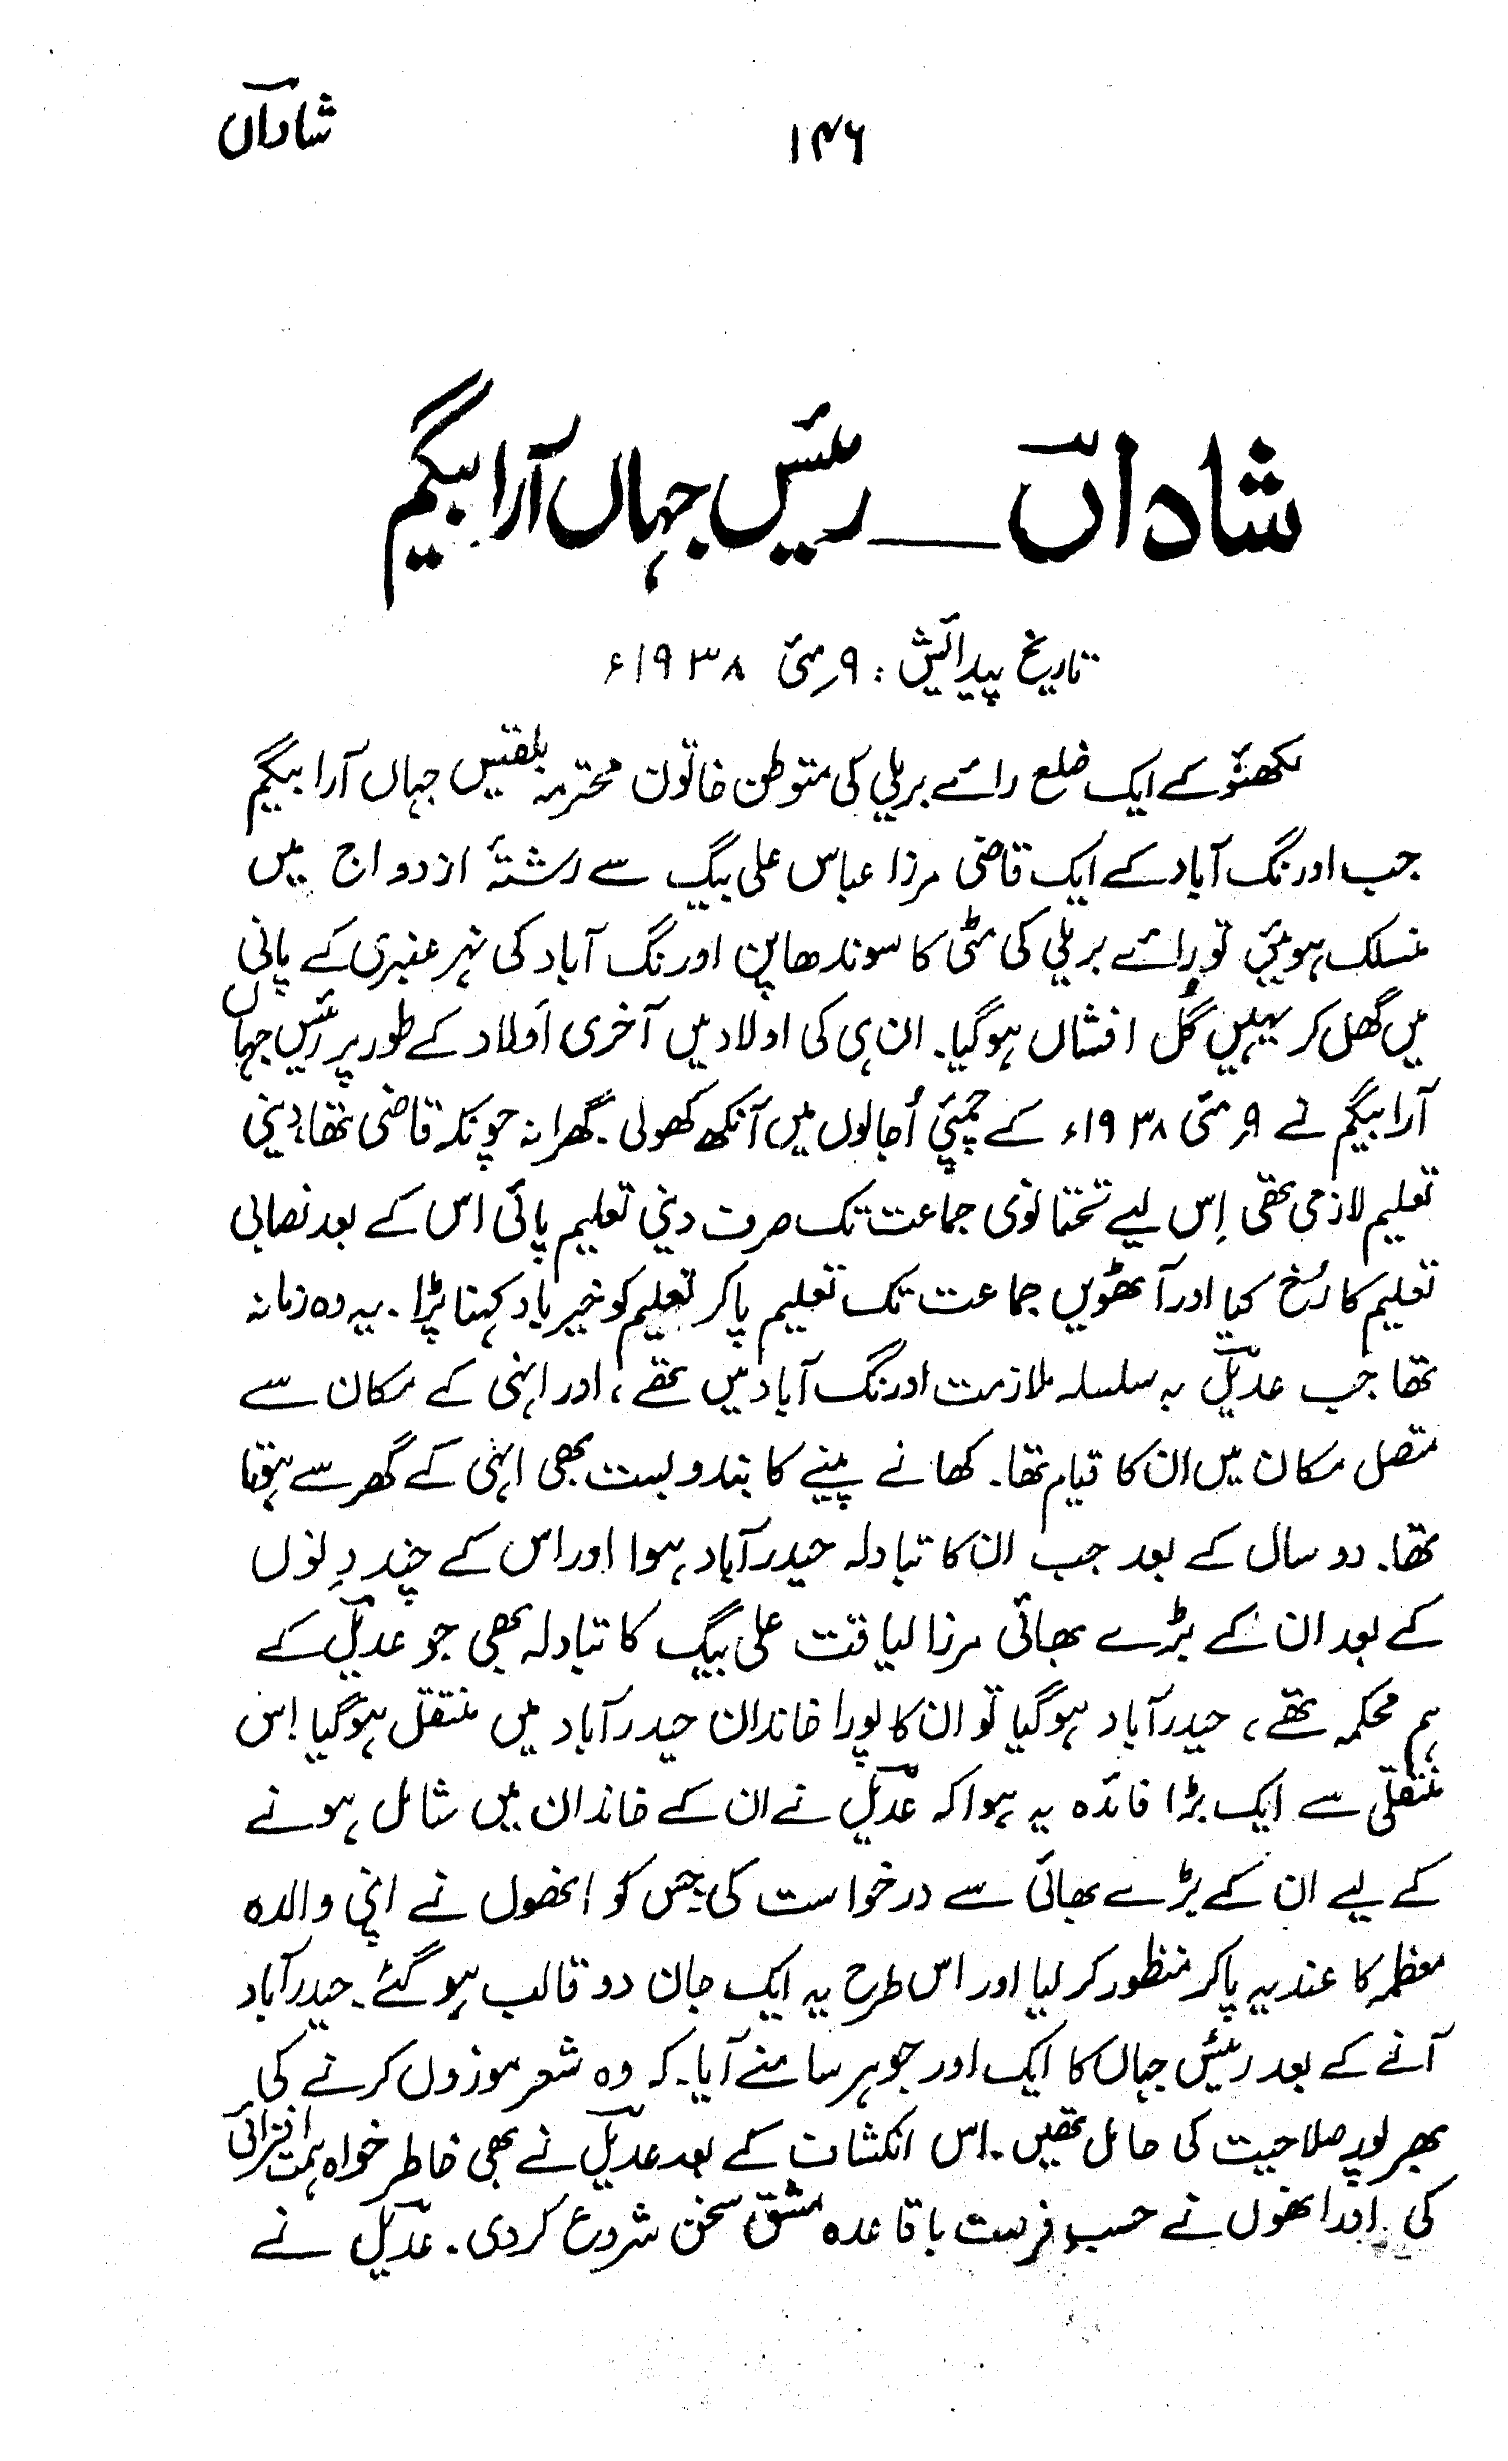 شاداںؔ
۱۴۶
شاداںؔ ــ رئیس جہاں آرا بیگم
تاریخ پیدائش : ۹؍مئی ۱۹۳۸ء
لکھنؤ کے ایک ضلع رائے بریلی کی متوطن خاتون محترمہ بلقیس جہاں آرا بیگم
جب اورنگ آباد کے ایک قاضی مرزا عباس علی بیگ سے رشتۂ ازدواج میں
منسلک ہوئیں تو رائے بریلی کی مٹی کا سوندھاپن اورنگ آباد کی نہر عنبری کے پانی
میں گھل کر یہیں گُل افشاں ہوگیا۔ ان ہی کی اولاد میں آخری اَولاد کے طور پر رئیس جہاں
آرا بیگم نے ۹؍مئی ۱۹۳۸ء کے چمپئی اُجالوں میں آنکھ کھولی۔ گھرانہ چونکہ قاضی تھا، دینی
تعلیم لازمی تھی اِس لیے تختانوی جماعت تک صرف دینی تعلیم پائی اس کے بعد نصابی
تعلیم کا رُخ کیا اور آٹھویں جماعت تک تعلیم پاکر تعلیم کو خیرباد کہنا پڑا۔ یہ وہ زمانہ
تھا جب عدیلؔ بہ سلسلہ ملازمت اورنگ آباد میں تھے، اور انہی کے مکان سے
متصل مکان میں ان کا قیام تھا۔ کھانے پینے کا بندوبست بھی انہی کے گھر سے ہوتا
تھا۔ دو سال کے بعد جب ان کا تبادلہ حیدرآباد ہوا اور اس کے چند دِنوں
کے بعد ان کے بڑے بھائی مرزا لیاقت علی بیگ کا تبادلہ بھی جو عدیلؔ کے
ہم محکمہ تھے، حیدرآباد ہوگیا تو ان کا پورا خاندان حیدرآباد میں منتقل ہوگیا اِس
منتقلی سے ایک بڑا فائدہ یہ ہوا کہ عدیلؔ نے ان کے خاندان میں شامل ہونے
کے لیے ان کے بڑے بھائی سے درخواست کی جس کو انھوں نے اپنی والدہ
معظمہ کا عندیہ پاکر منظور کرلیا اور اس طرح یہ ایک جان دو قالب ہوگئے۔ حیدرآباد
آنے کے بعد رئیس جہاں کا ایک اور جوہر سامنے آیا۔ کہ وہ شعر موزوں کرنے کی
بھرپور صلاحیت کی حامل تھیں۔ اس انکشاف کے بعد عدیلؔ نے بھی خاطر خواہ ہمت افزائی
کی اور انھوں نے حسبِ فرصت باقاعدہ مشق سخن شروع کردی۔ عدیلؔ نے